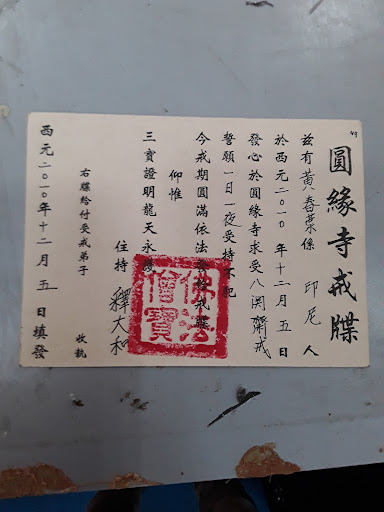 圓緣寺戒牒
茲有黃春葉係 印尼 人
於西元二〇一〇年十二月五日
發心於圓緣寺求受八関齋戒
誓願一日一夜受持不犯
今戒期圓滿依法發給戒牒
仰惟
三寶證明龍天永護
住持 釋大和
佛法僧寶
右牒給付受戒弟子 收執
西元二〇一〇年十二月五日填發